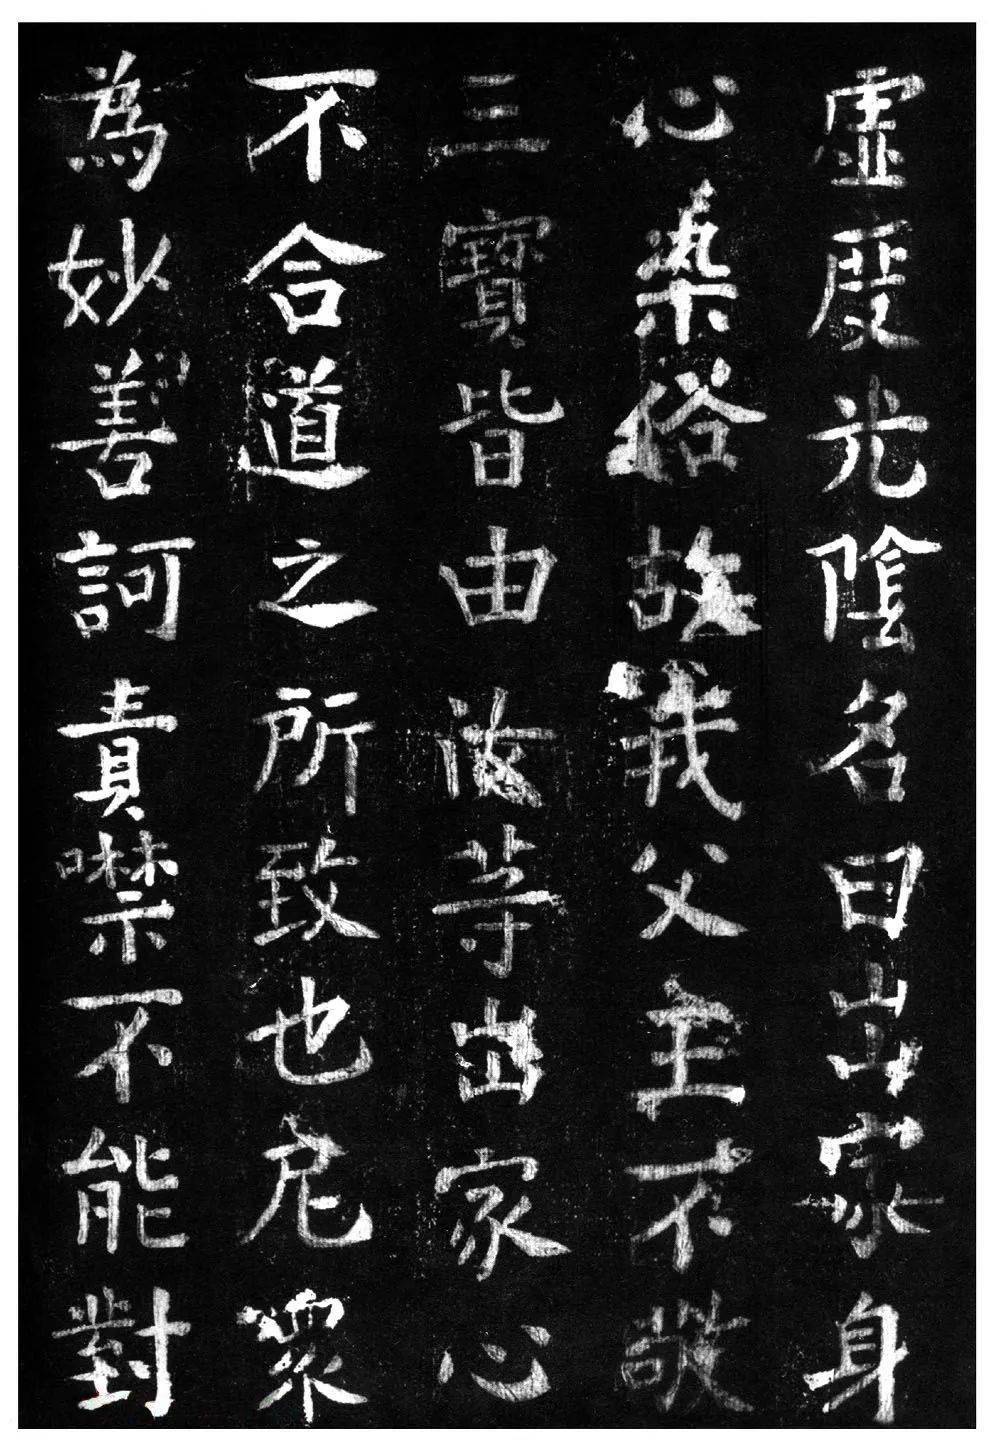 虛度光陰名曰出家身
心染俗故我父主不敬
三寶皆由汝等出家心
不合道之所致也尼眾
為妙善訶責噤不能對